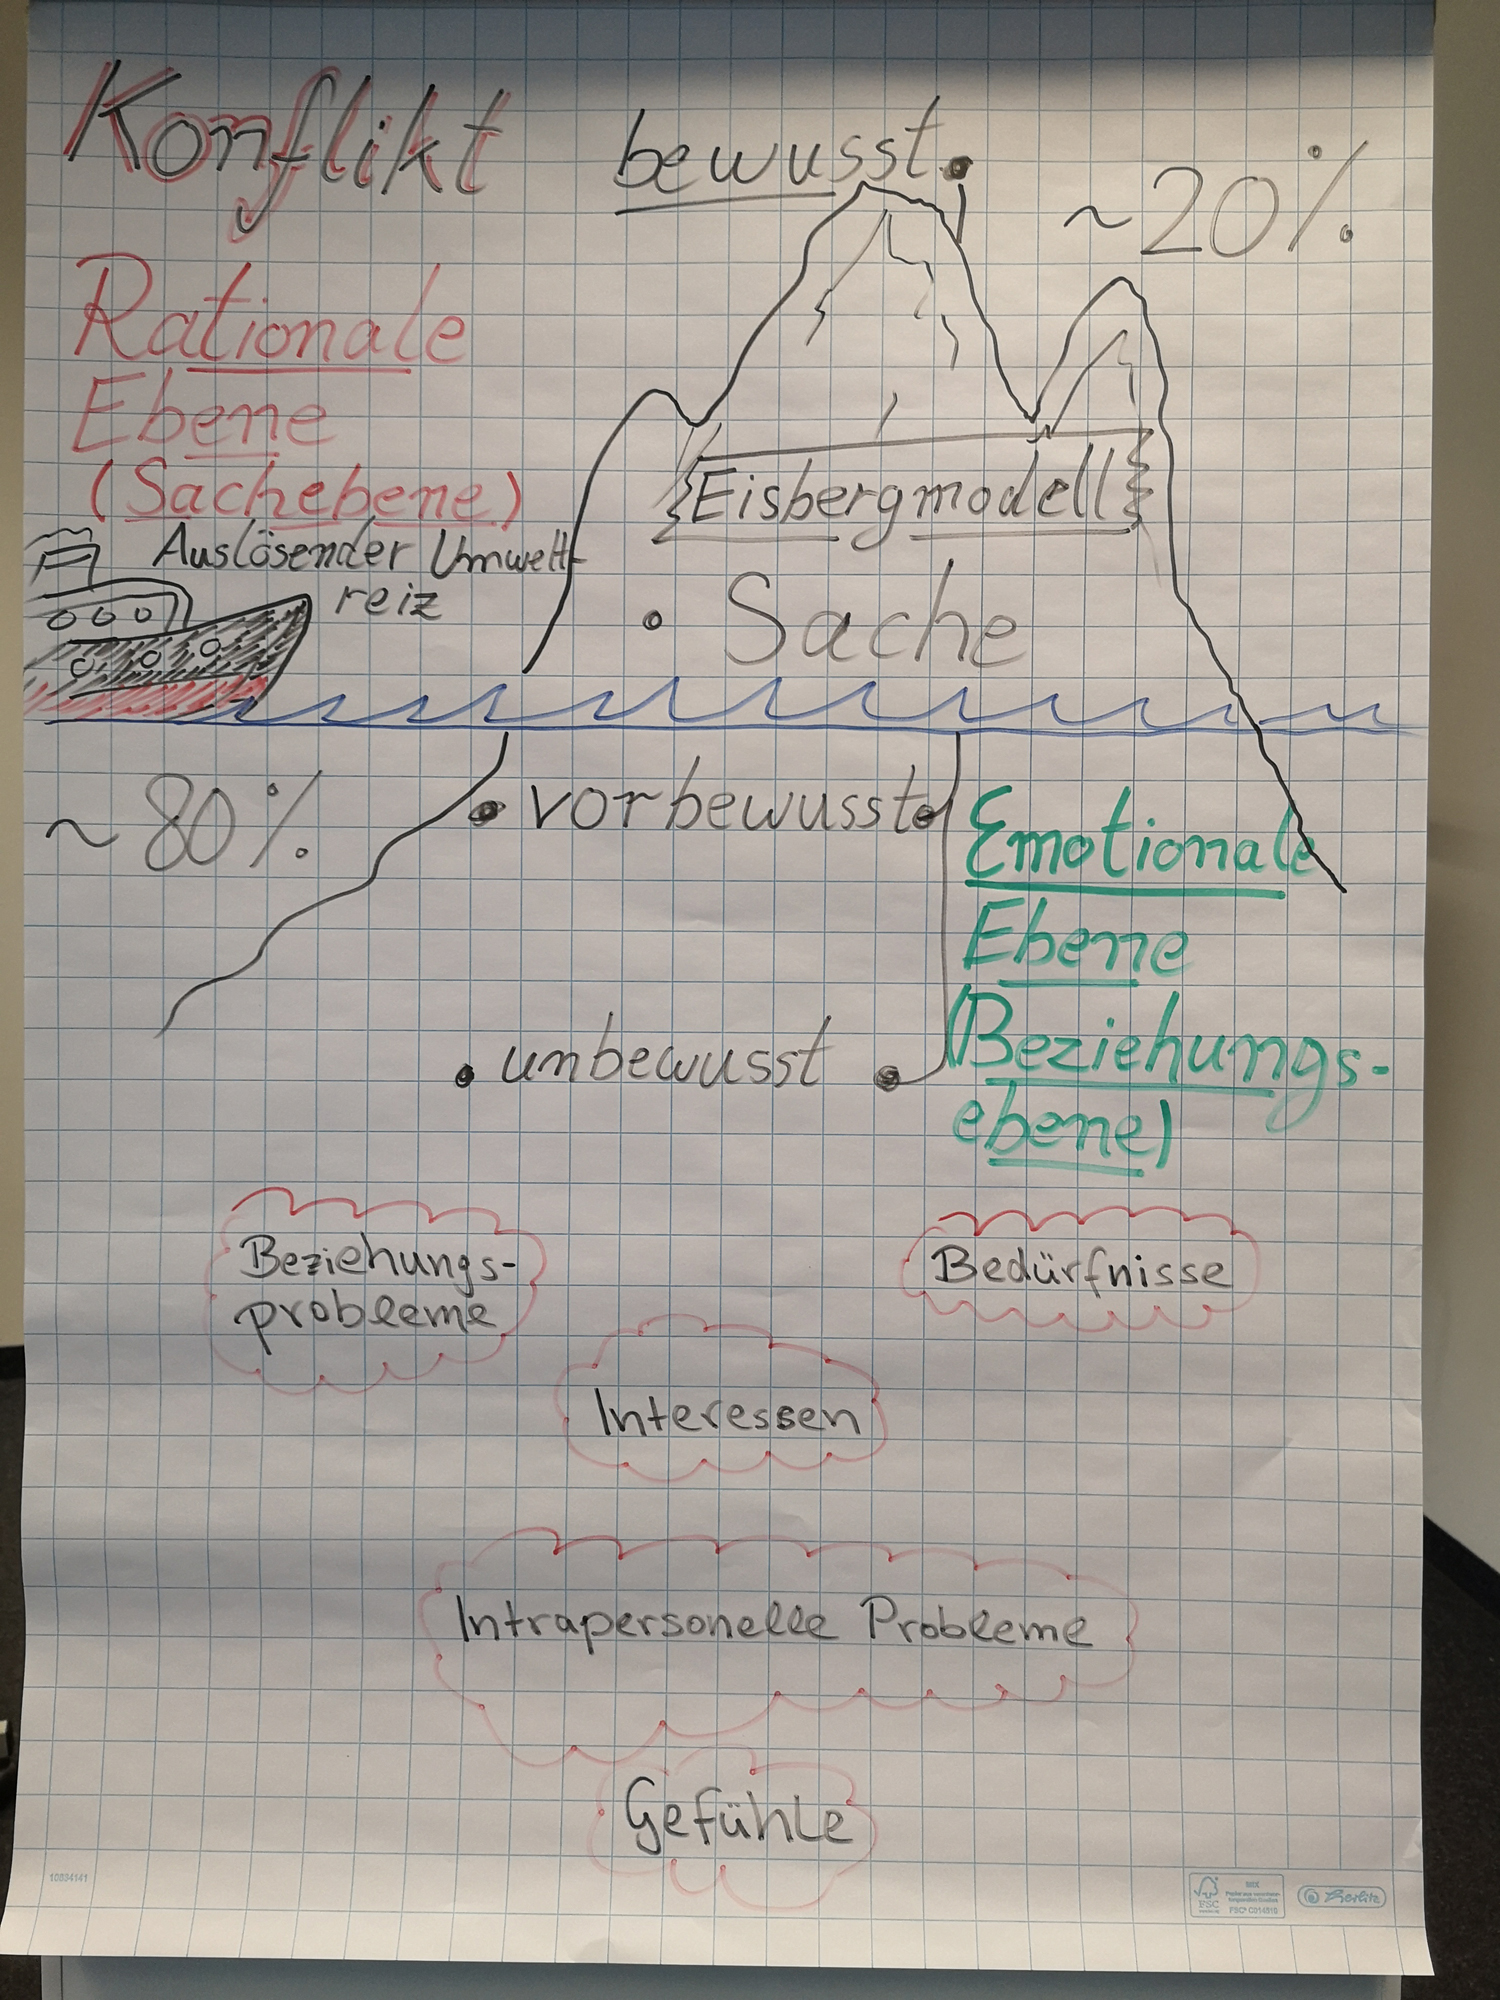 Konflikt
bewusst
~20%
Rationale
Ebene
(Sachebene)
Auslösender Umwelt-
reiz
Eisbergmodell
Sache
~80%
vorbewusst
Emotionale
Ebene
(Beziehungs-
ebene)
unbewusst
Beziehungs-
probleme
Bedürfnisse
Interessen
Intrapersonelle Probleme
Gefühle
10834141
FSC
MIX
FSC® C014510
Herlitz